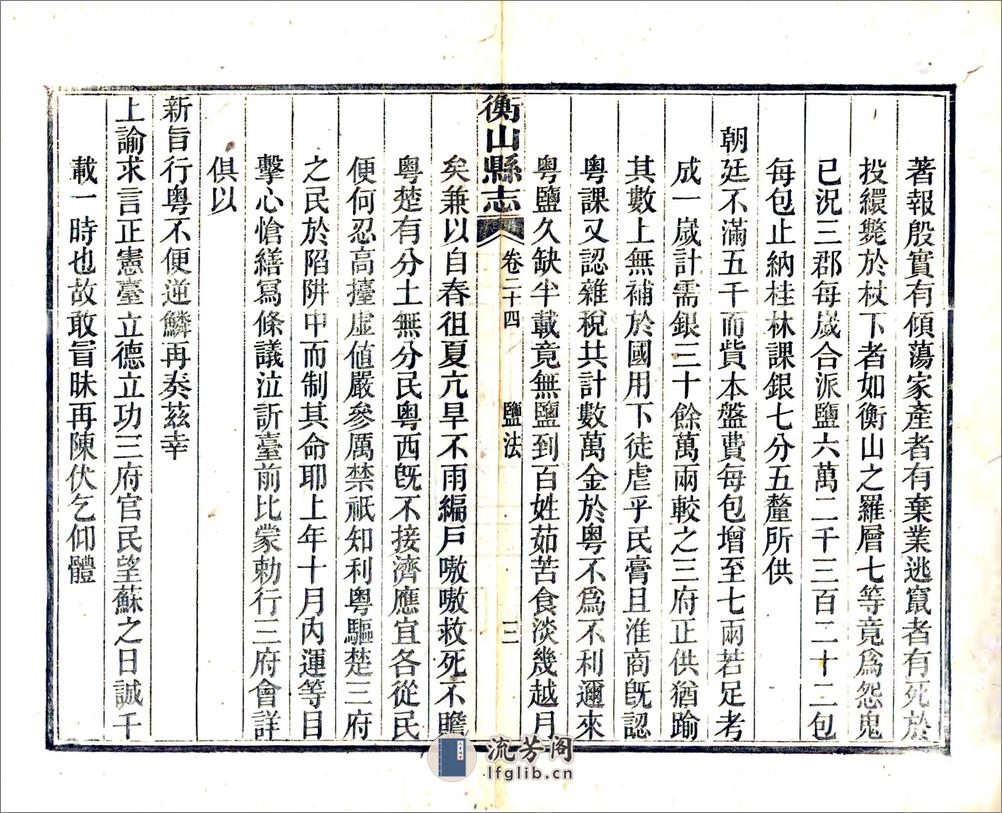 著報殷實有傾蕩家產者有棄業逃竄者有死於
投繯斃於杖下者如衡山之羅層七等竟爲怨鬼
已況三郡每歲合派鹽六萬二千三百二十二包
每包止納桂林課銀七分五釐所供
朝廷不滿五千而貲本盤費每包增至七兩若足考
成一歲計需銀三十餘萬兩較之三府正供猶踰
其數上無補於國用下徒虐乎民膏且淮商旣認
粵課又認雜稅共計數萬金於粵不爲不利邇來
粵鹽久缺半載竟無鹽到百姓茹苦食淡幾越月
衡山縣志
卷二十四
鹽法
三
矣兼以自春徂夏亢旱不雨編戶嗷嗷救死不贍
粵楚有分土無分民粵西旣不接濟應宜各從民
便何忍高擡虛値嚴參厲禁祇知利粵驅楚三府
之民於陷阱中而制其命耶上年十月內運等目
擊心愴繕寫條議泣訴臺前比蒙勅行三府會詳
俱以
新旨行粵不便逆鱗再奏茲幸
上諭求言正憲臺立德立功三府官民望蘇之日誠千
載一時也故敢冒昧再陳伏乞仰體
流芳阁
lfglib.cn